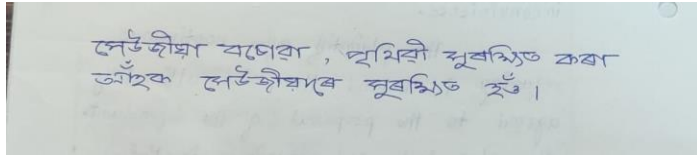 সেউজীয়া বচোৱা, পৃথিৱী সুৰক্ষিত কৰা
আঁহক সেউজীয়াৰে সুৰক্ষিত হওঁ।